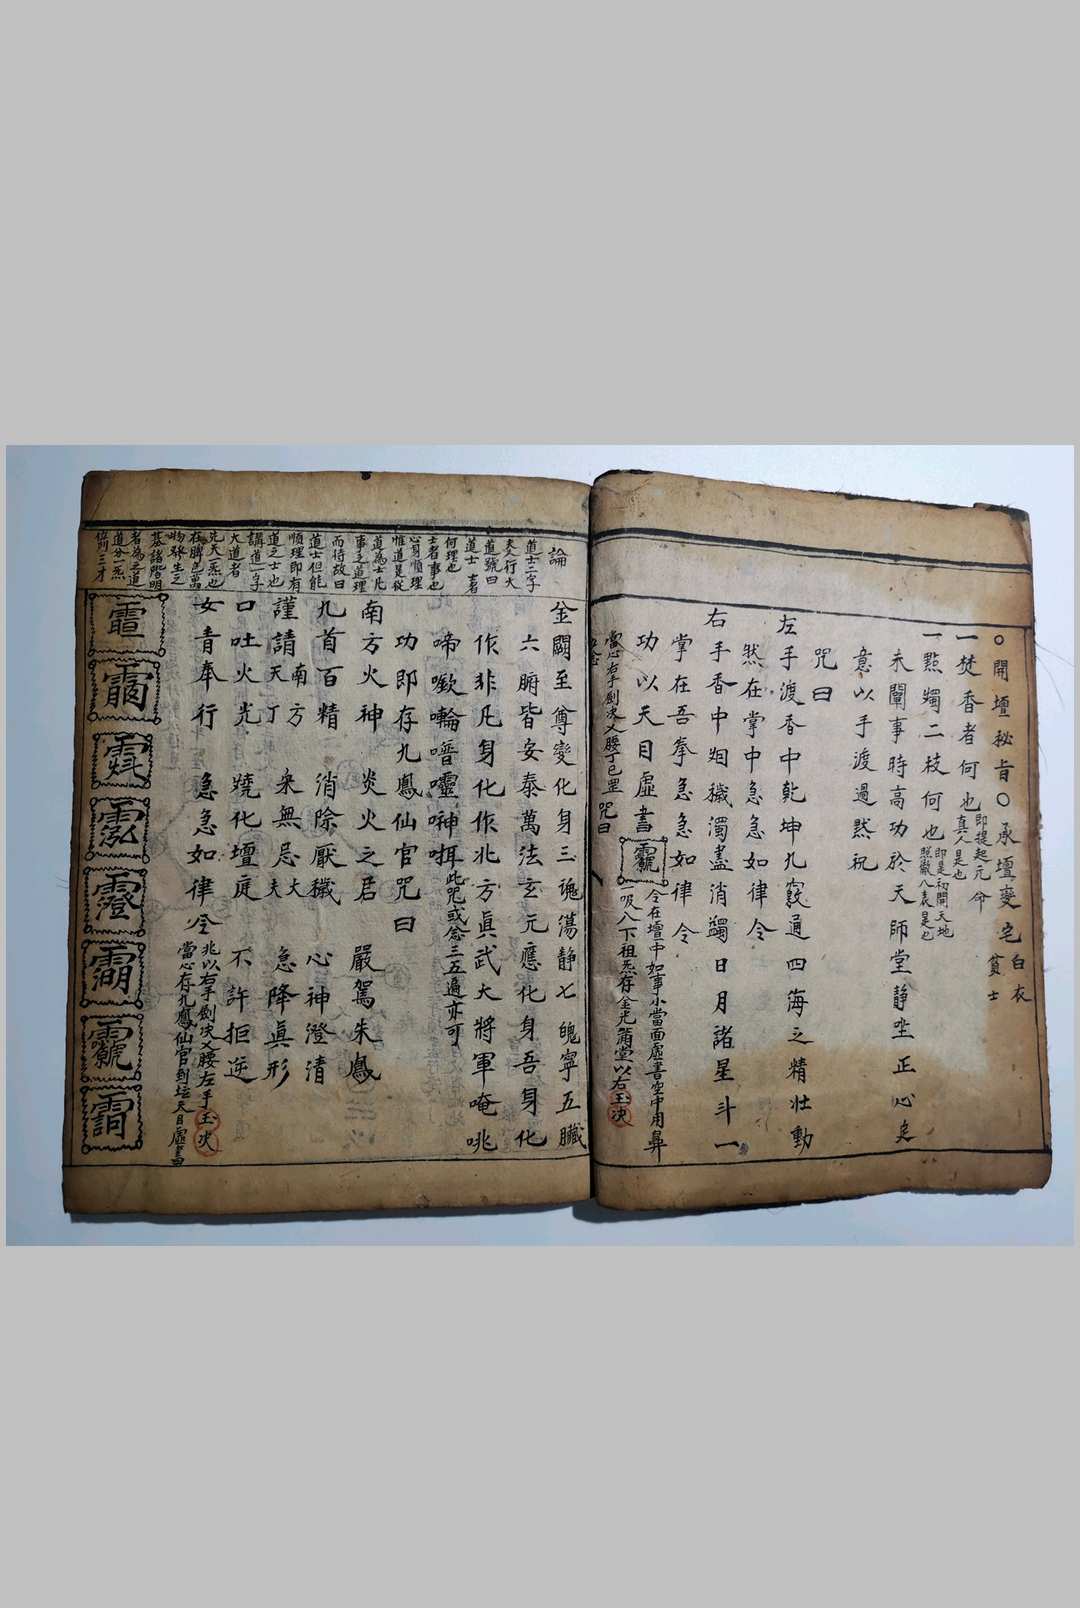 ○開壇秘旨○承壇變
白衣
貧士
一焚香者何也即提起元命真人是也
一點燭二枝何也即是初開天地照徹八表是也
未闡事時高功於天師堂静坐正心
意以手渡過默祝
咒曰
左手渡香中乾坤九竅通四海之精壮動
然在掌中急急如律令
右手香中烟穢濁盡消蠲日月諸星斗一
掌在吾拳急急如律令
功以天目虛書
令在壇中如事小當面虛書空中用鼻
一吸八下祖炁存金光滿堂以右玉决
當心右手劍决乂腰丁巳罡 咒曰
論
道士二字
夫人行大
道號曰
道士 士者
何理也
士者事也
心身順理
惟道是從
道為士凡
事之道理
而待故曰
道士但能
順理即有
道之士也
講道一字
大道者
先天一炁也
在脾包萬
物發生之
基諸階明
者為之道
道分一炁
位列三才
金闕至尊變化身三魂蕩静七魄寧五臟
六腑皆安泰萬法玄元應化身吾身化
作非凡身化作北方真武大將軍唵吪
啼㗀㘃噾嚧呻咡此咒或念三五遍亦可
功即存九鳳仙官咒曰
南方火神 炎火之君 嚴駕朱鳳
九首百精 消除厭穢 心神澄清
謹請南方天丁 杀無忌大夫 急降真形
口吐火光 燒化壇庭 不許拒逆
女青奉行 急急如律令
兆以右手劍决乂腰左手玉决
當心存九鳳仙官到坛天目虛書